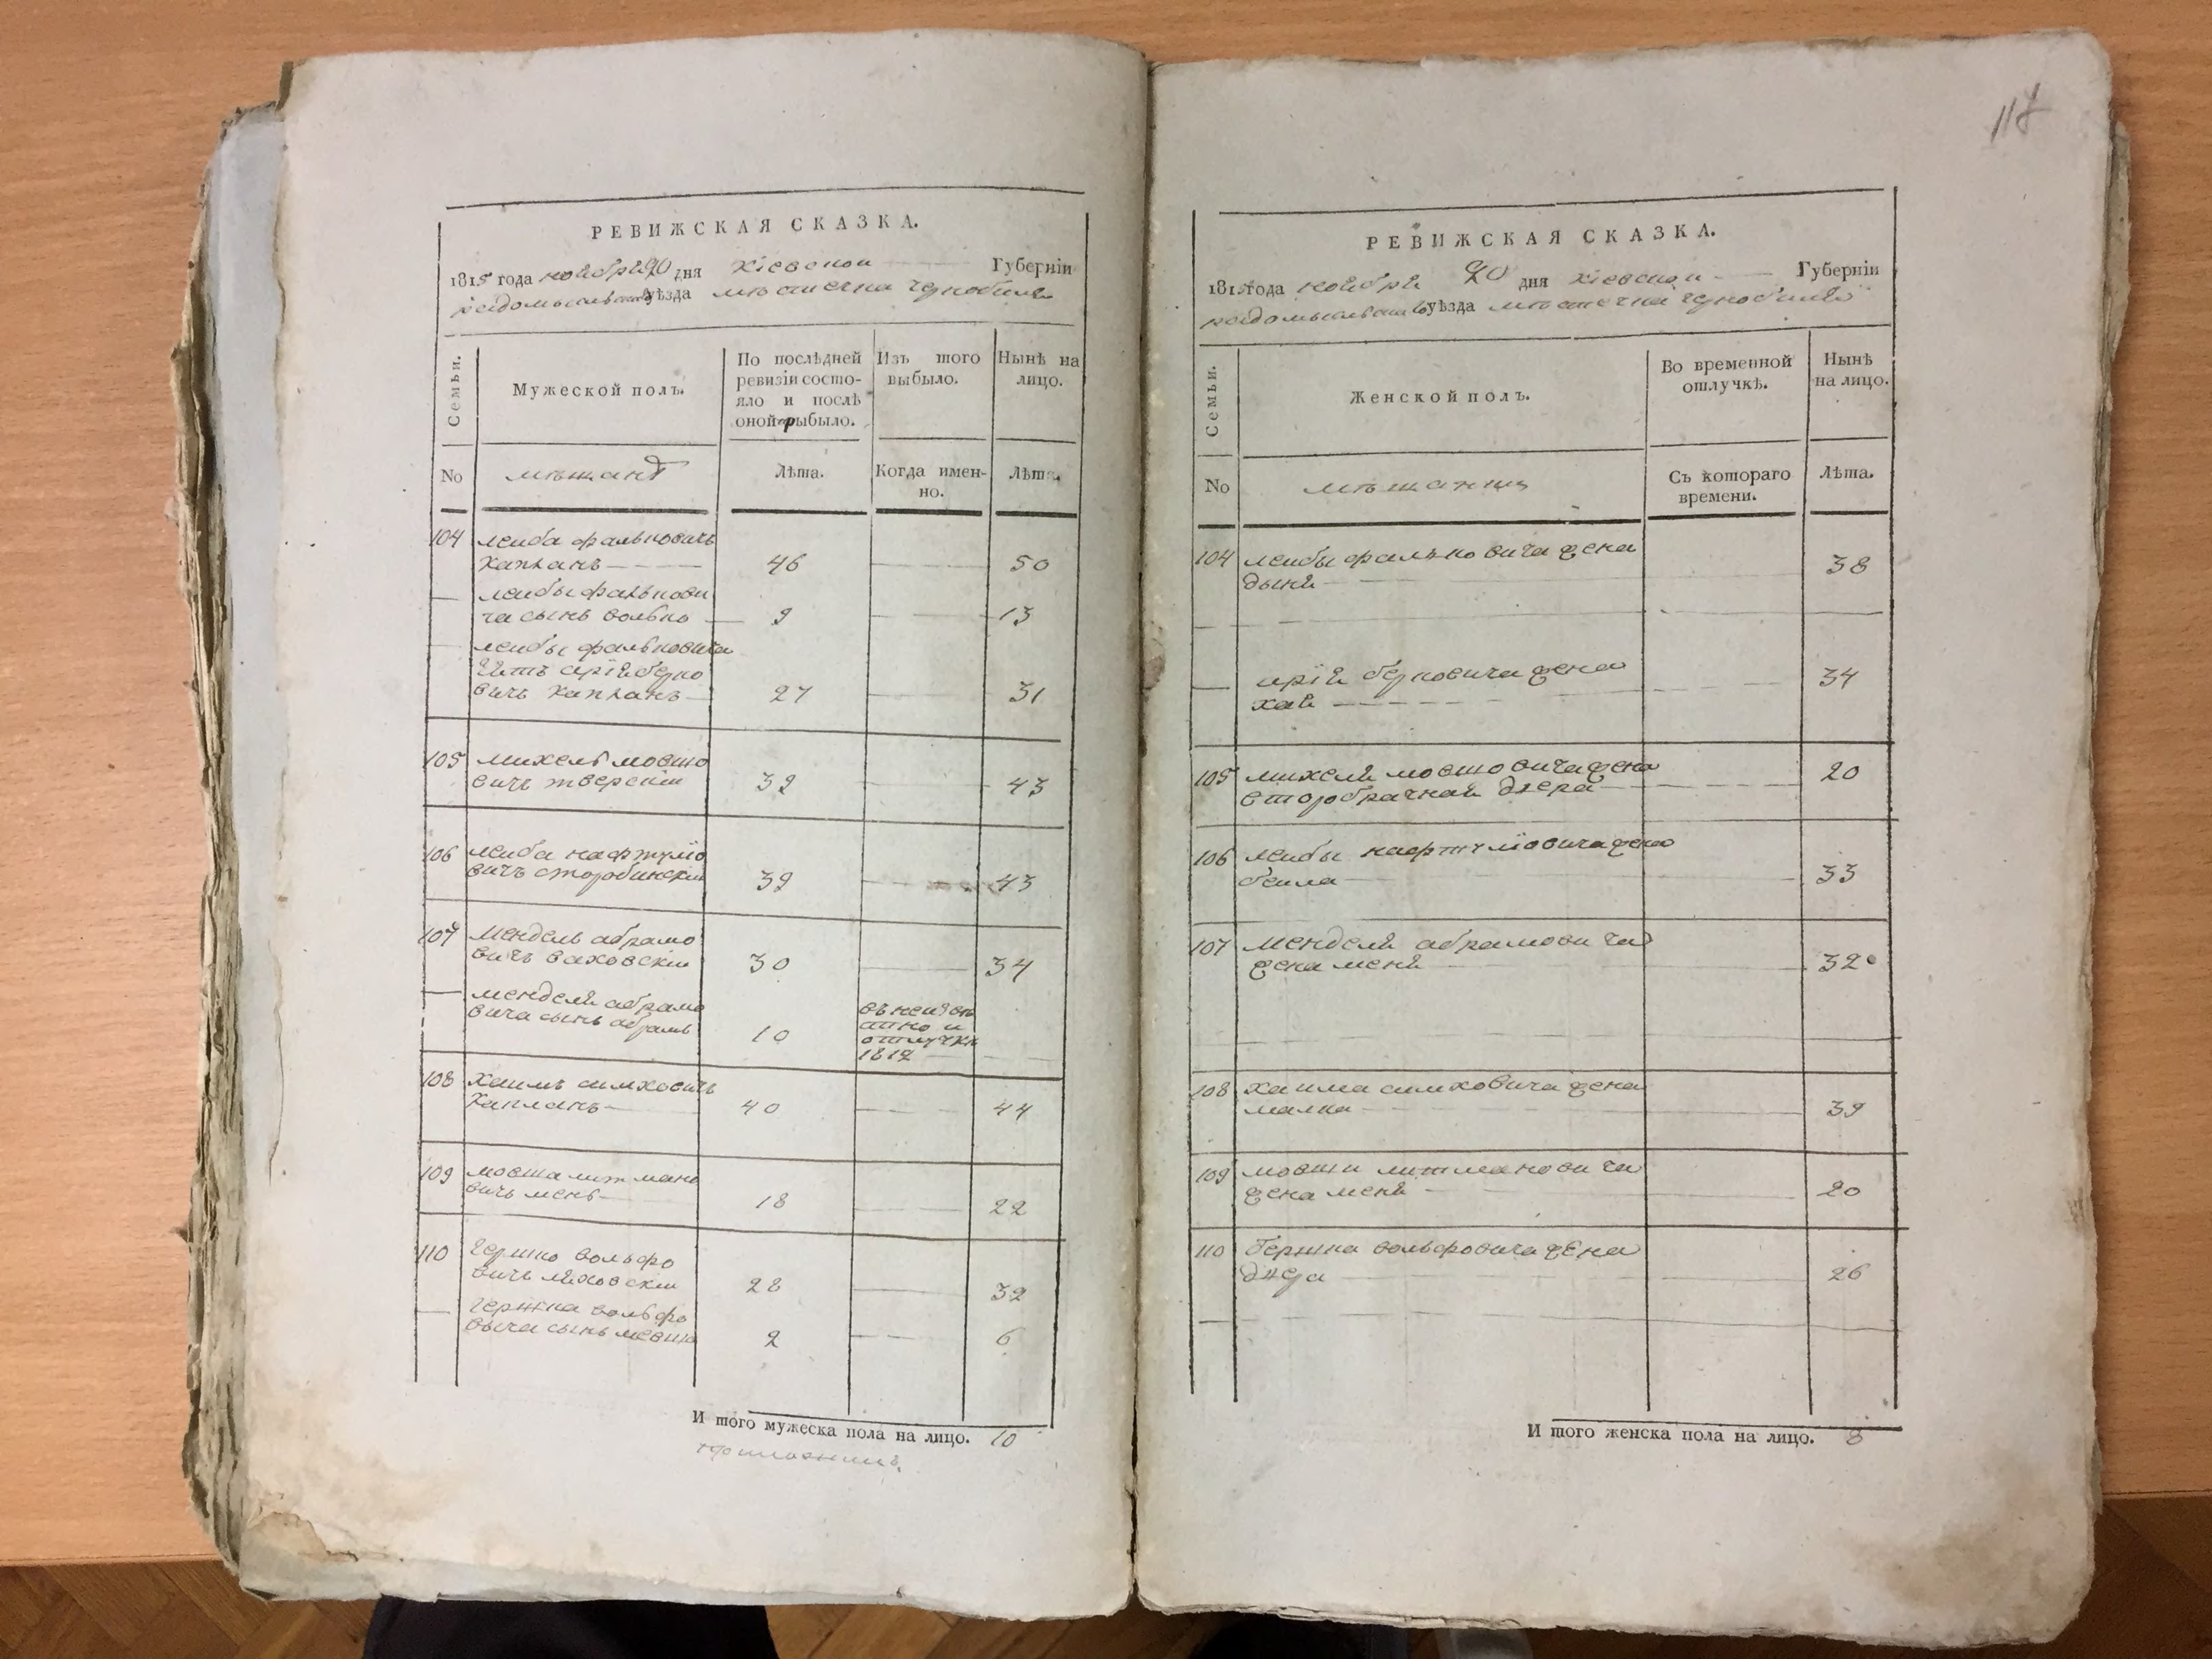 РЕВИЖСКАЯ СКАЗКА.
1815 года ноября 20 дня кіевской Губерніи
радомысльскаго уѣзда мѣстечка чернобиля
Семьи.
Мужеской полъ.
По послѣдней
ревизіи состо-
яло и послѣ
оной прибыло.
Изъ того
выбыло.
Нынѣ на
лицо.
No
мѣщанъ
Лѣта.
Когда имен-
но.
Лѣта.
104 леиба фальковичъ
капланъ 46 50
леибы фалькови
ча сынъ волько 9 13
леибы фальковича
зять арія берко
вичъ капланъ 27 31
105 михель мовшо
вичъ тверскіи 39 43
106 леиба нафтуліо
вичъ сторобинскіи 39 43
107 мендель абрамо
вичъ ваховскіи 30 34
менделя абрамо
вича сынъ абрамъ 10
въ неизвѣ
стно и
отлучки
1812
108 хаимъ симховичъ
капланъ 40 44
109 мовша литмано
вичъ мень 18 22
110 гершко вольфо
вичъ ляховскіи 28 32
гершка вольфо
выча сынъ мовша 2 6
И того мужеска пола на лицо. 10
117
РЕВИЖСКАЯ СКАЗКА.
1815 года ноября 20 дня кіевской Губерніи
радомысльскаго уѣзда мѣстечка чернобиля
Семьи.
Женской полъ.
Во временной
отлучкѣ.
Нынѣ
на лицо.
No
мѣщанки
Съ котораго
времени.
Лѣта.
104 леибы фальковича жена
дыня 38
арія берковича жена
хая 34
105 михеля мовшовича жена
второбрачная двера 20
106 леибы нафтуліовича жена
беила 33
107 менделя абрамовича
жена меня 32
108 хаима симховича жена
малка 39
109 мовши литмановича
жена меня 20
110 гершка вольфовича жена
двера 26
И того женска пола на лицо. 8